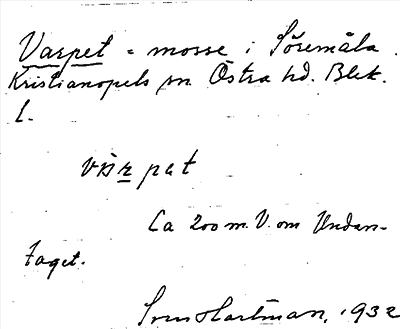 Varpet = mosse i Söremåla.
Kristianopels sn. Östra hd. Blek.
l.
pet
Ca 200 m. V. om Undan-
taget.
Sven Hartman, 1932